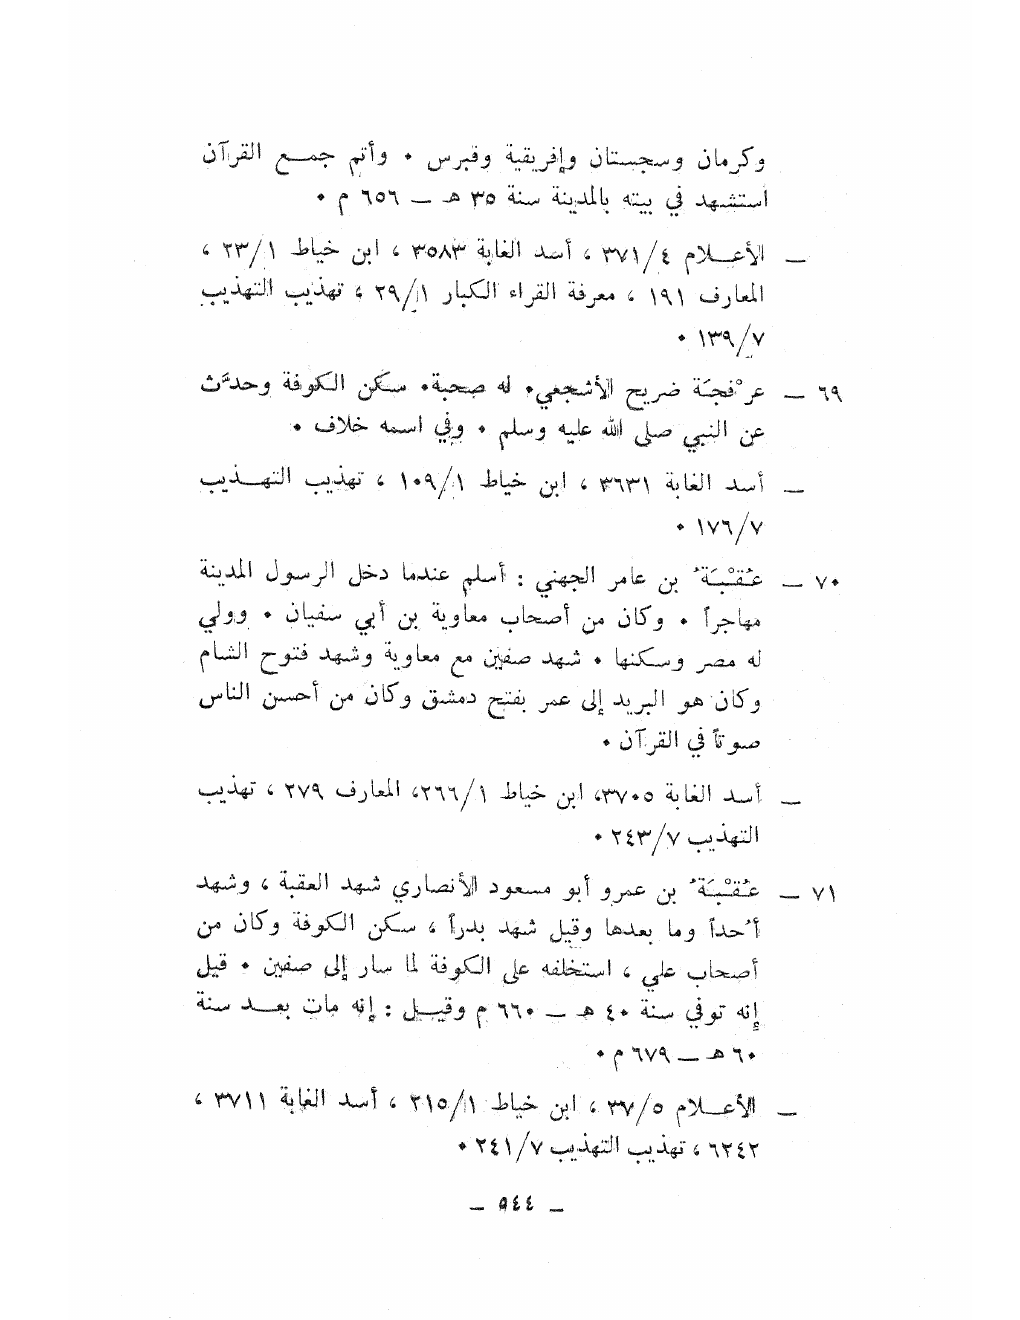 وكرمان وسجستان وإفريقية وقبرس ٠ وأتم جمع القرآن
استشهد في بيته بالمدينة سنة ٣٥ هـ ــ ٦٥٦ م ٠
ــ الأعلام ٣٧١/٤ ، أسد الغابة ٣٥٨٣ ، ابن خياط ٢٣/١ ،
المعارف ١٩١ ، معرفة القراء الكبار ٢٩/١ ، تهذيب التهذيب
١٣٩/٧ ٠
٦٩ ــ عرْفجَة ضريح الأشجعي٠ له صحبة٠ سكن الكوفة وحدَّث
عن النبي صلى الله عليه وسلم ٠ وفي اسمه خلاف ٠
ــ أسد الغابة ٣٦٣١ ، ابن خياط ١٠٩/١ ، تهذيب التهذيب
١٧٦/٧ ٠
٧٠ ــ عُقْبَةُ بن عامر الجهني : أسلم عندما دخل الرسول المدينة
مهاجراً ٠ وكان من أصحاب معاوية بن أبي سفيان ٠ وولي
له مصر وسكنها ٠ شهد صفين مع معاوية وشهد فتوح الشام
وكان هو البريد إلى عمر بفتح دمشق وكان من أحسن الناس
صوتاً في القرآن ٠
ــ أسد الغابة ٣٧٠٥، ابن خياط ٢٦٦/١، المعارف ٢٧٩ ، تهذيب
التهذيب ٢٤٣/٧ ٠
٧١ ــ عُقْبَةُ بن عمرو أبو مسعود الأنصاري شهد العقبة ، وشهد
أُحداً وما بعدها وقيل شهد بدراً ، سكن الكوفة وكان من
أصحاب علي ، استخلفه على الكوفة لما سار إلى صفين ٠ قيل
إنه توفي سنة ٤٠ هـ ــ ٦٦٠ م وقيل : إنه مات بعد سنة
٦٠ هـ ــ ٦٧٩ م ٠
ــ الأعلام ٣٧/٥ ، ابن خياط ٢١٥/١ ، أسد الغابة ٣٧١١ ،
٦٢٤٢ ، تهذيب التهذيب ٢٤١/٧ ٠
ــ ٥٤٤ ــ